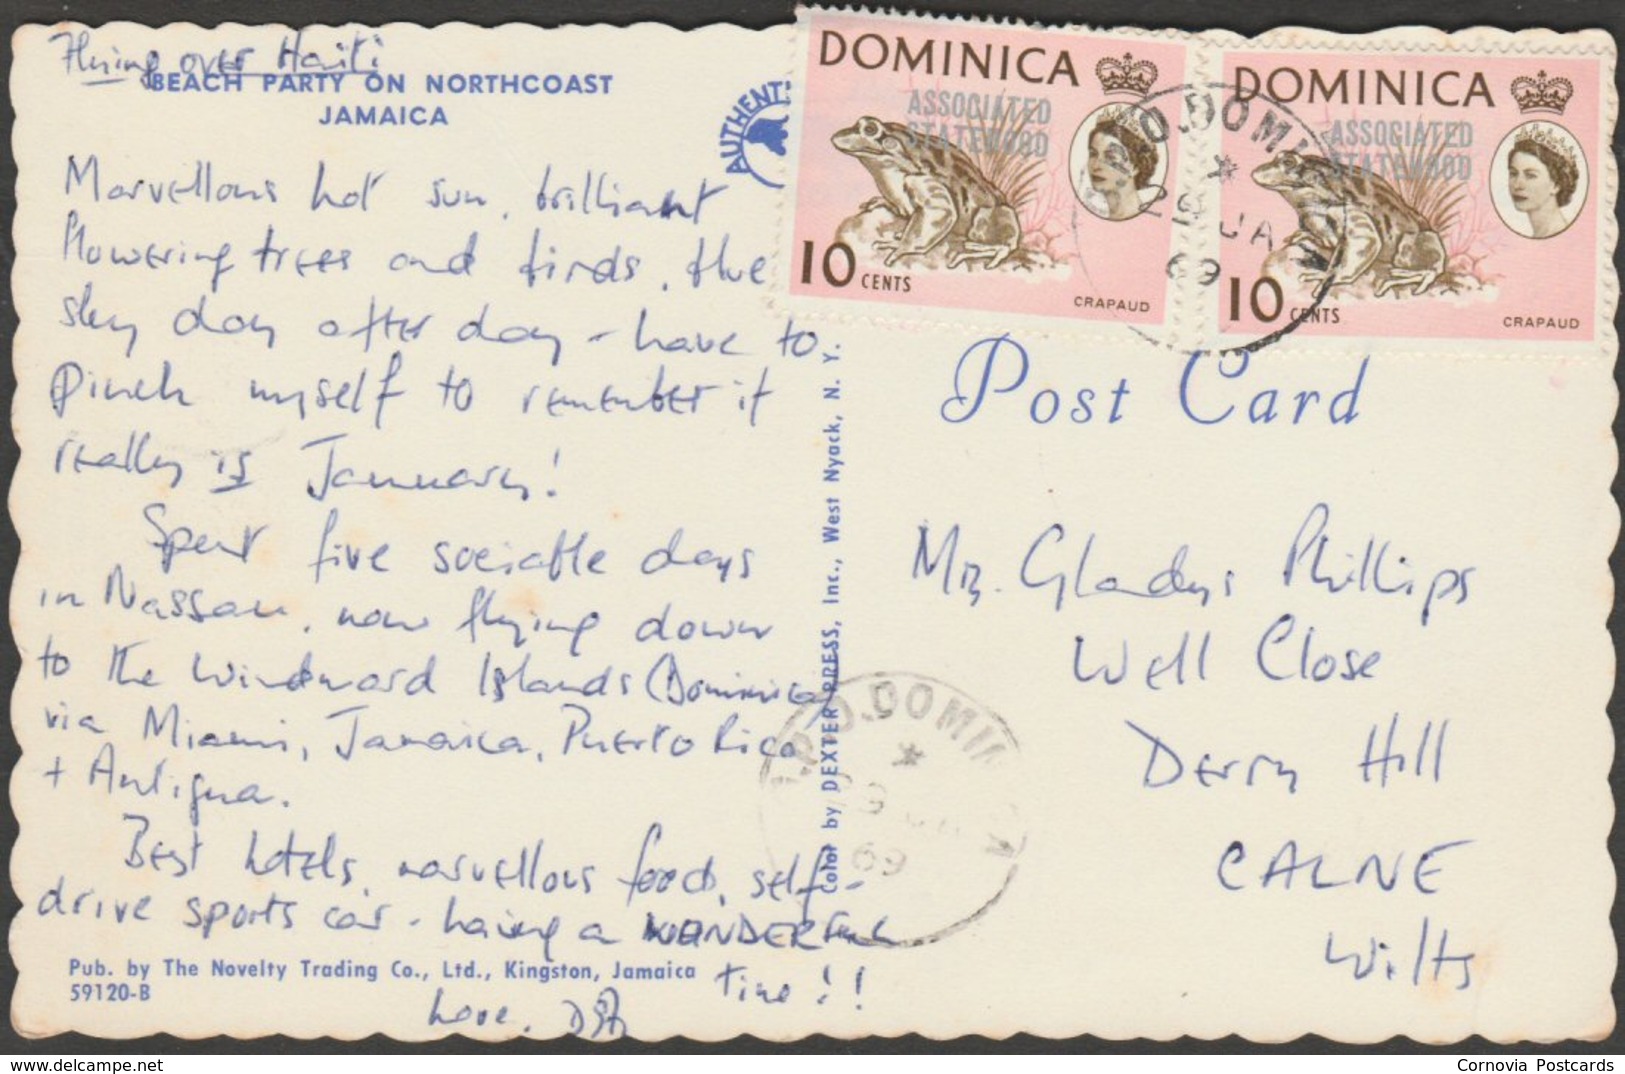 Flying over Haiti
BEACH PARTY ON NORTHCOAST
JAMAICA
Marvellous hot sun, brilliant
flowering trees and birds, blue
sky day after day - have to
pinch myself to remember it
really is January!
Spent five sociable days
in Nassau, now flying down
to the Windward Islands (Dominica)
via Miami, Jamaica, Puerto Rico
+ Antigua.
Best hotels, marvellous food, self-
drive sports car - having a WONDERFUL
time!!
Love,
Pub. by The Novelty Trading Co., Ltd., Kingston, Jamaica
59120-B
Color by DEXTER PRESS, Inc., West Nyack, N. Y.
AUTHENT
DOMINICA
ASSOCIATED
STATEHOOD
10 CENTS
CRAPAUD
DOMINICA
ASSOCIATED
STATEHOOD
10 CENTS
CRAPAUD
G.P.O. DOMINICA
29 JA
69
Post Card
Mrs. Gladys Phillips
Well Close
Derry Hill
CALNE
Wilts
P.O. DOMINICA
69
Cornovia Postcards